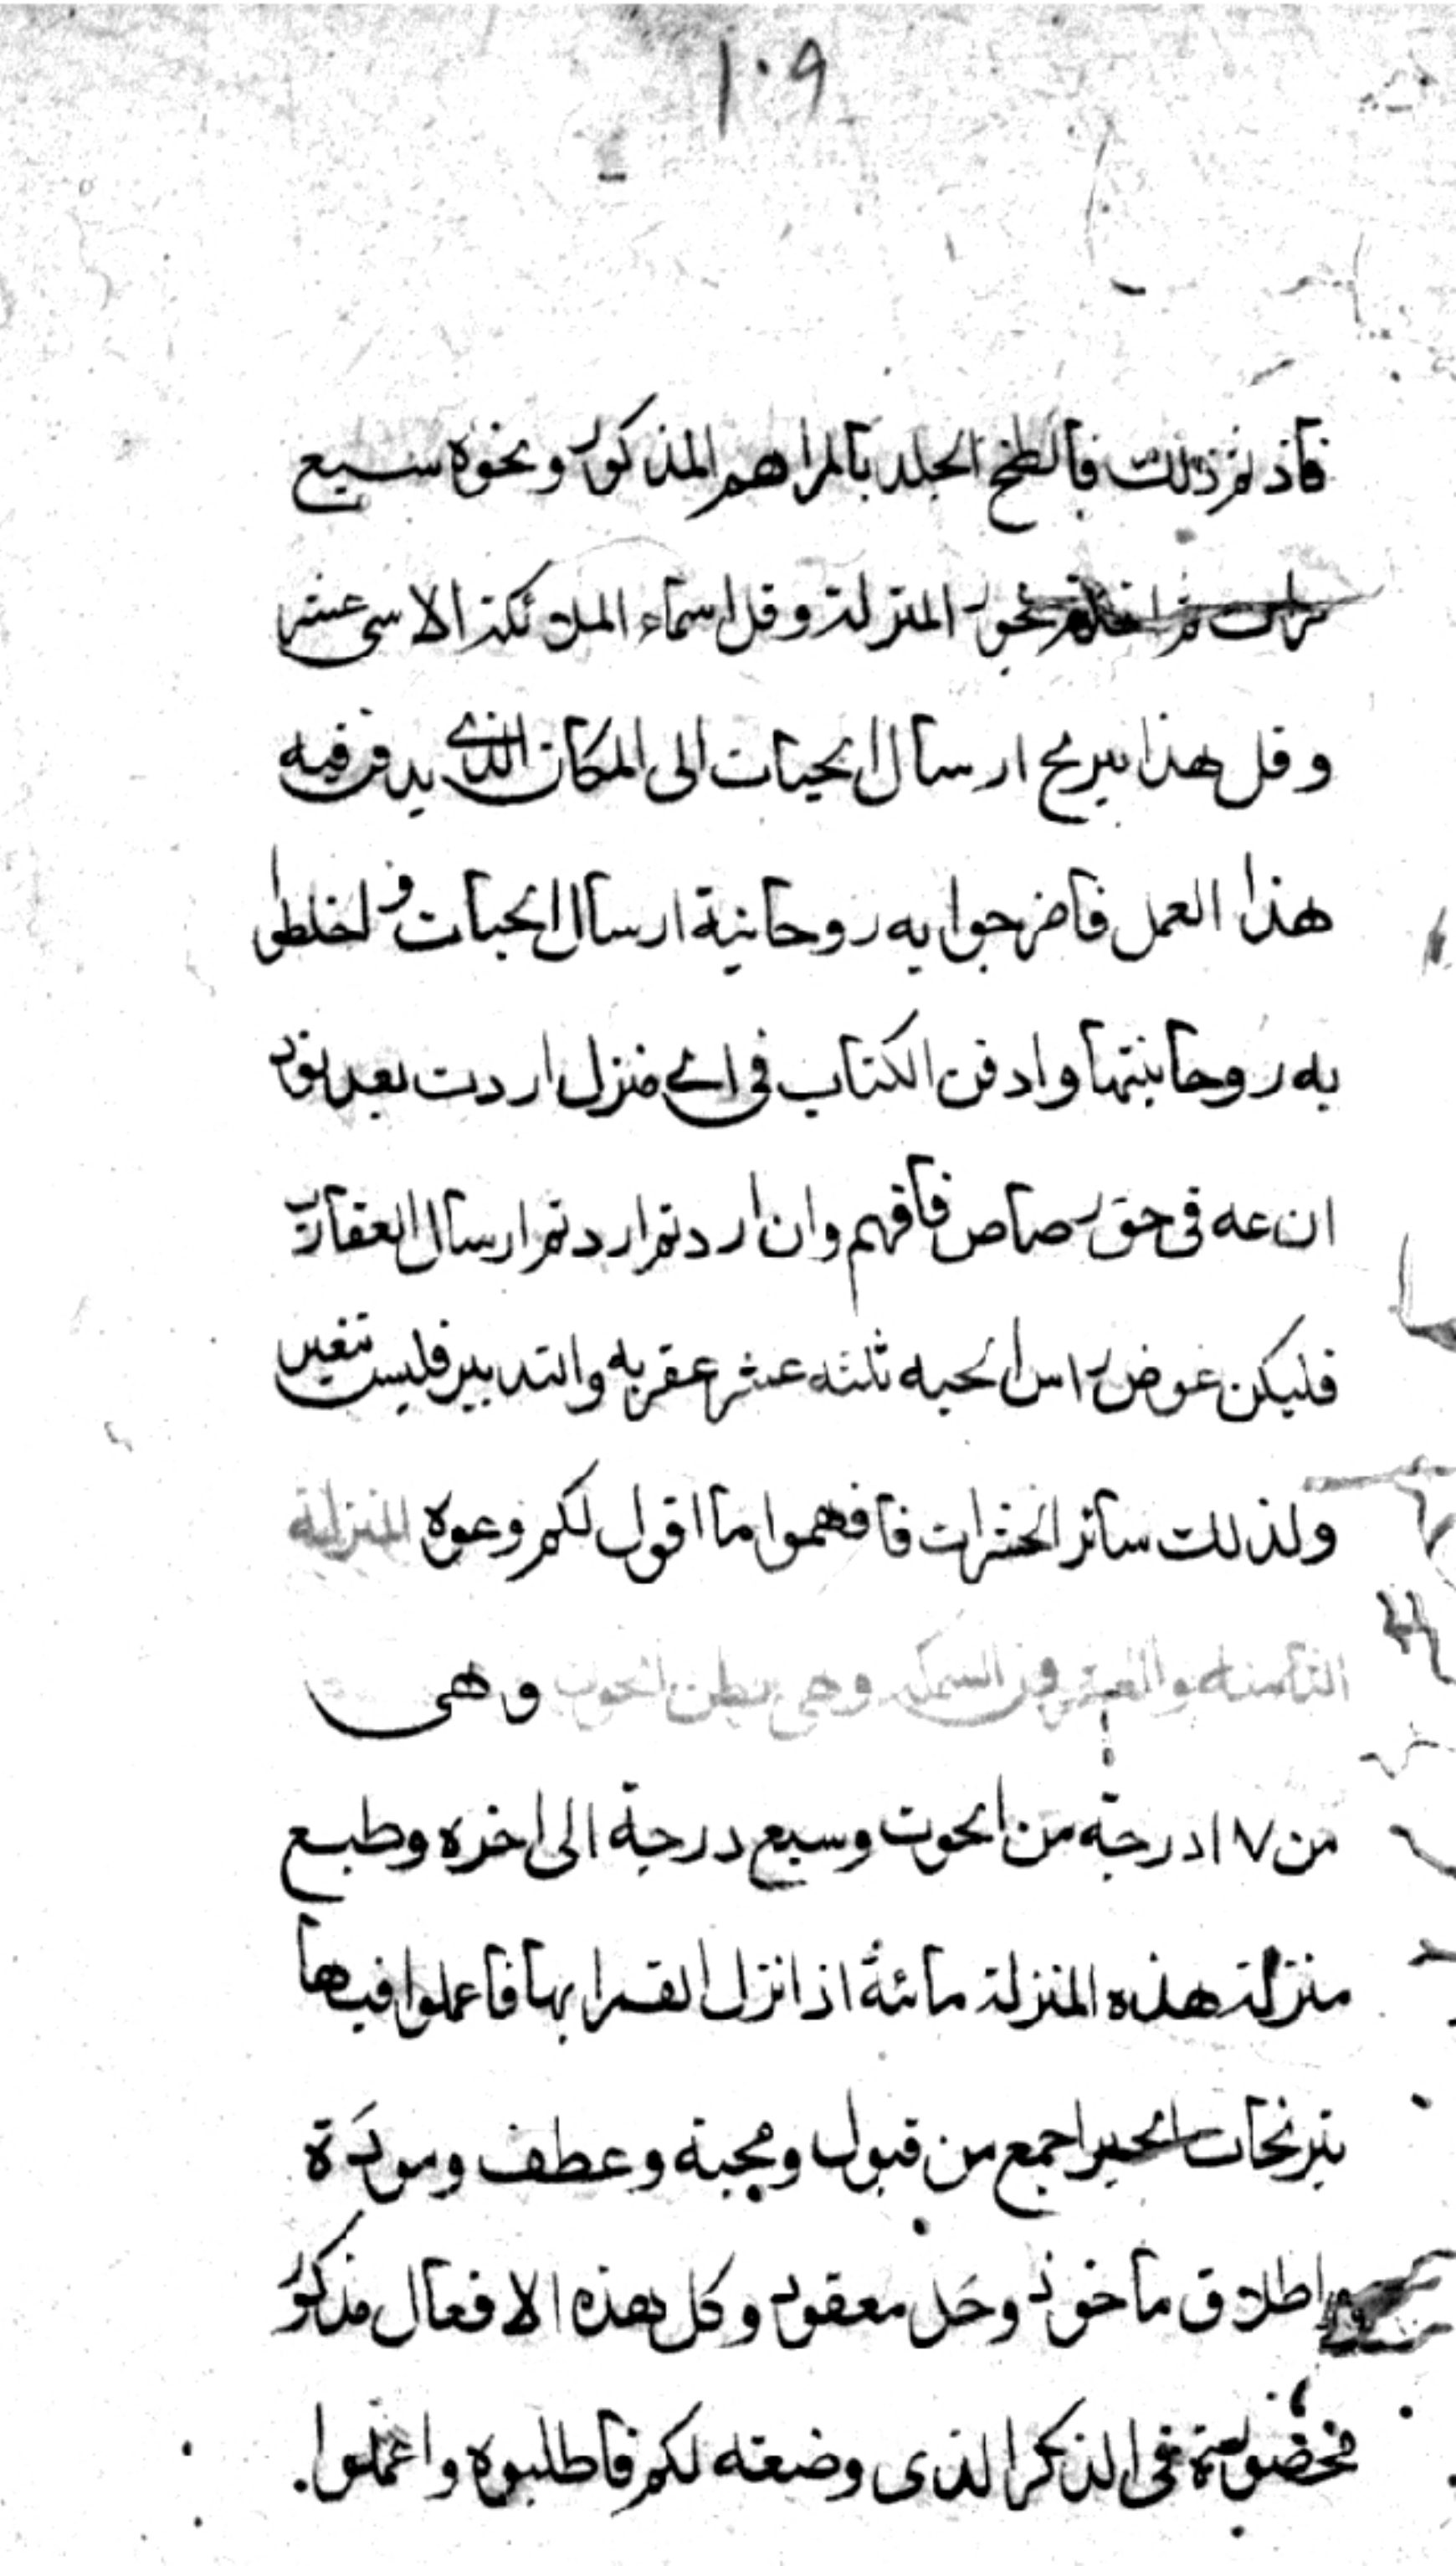 ١٠٩
فاذ تم ذلك فالطخ الجلد بالمراهم المذكور وبخوه سبع
مرات ثم بخور المنزلة وقل اسماء الملائكة الاسى عشر
وقل هذا نيريج ارسال الحيات الى المكان الذى يدفر فيه
هذا العمل فامزجوا به روحانية ارسال الحيات و اخلطى
به روحانيتها وادفن الكتاب فى اى منزل اردت بعد بود
ان عه فى حق رصاص فافهم وان اردتم اردتم ارسال العقارب
فليكن عوض راس الحيه ثلثه عشر عقربه والتدبير فليس تتغير
ولذلك سائر الحشرات فافهموا ما اقول لكم وعوه المنزلة
الثامنه والعشرون السمكه وهى بطن الحوت وهى
من ١٧ درجة من الحوت وسبع درجة الى اخره وطبع
منزلة هذه المنزلة مائة اذا نزل القمر ابها فاعملوا فيها
نيرنجات الخير اجمع من قبول ومحبة وعطف ومودة
واطلاق ماخوذ وحل معقود وكل هذه الافعال مذكور
مخصوصة فى الذكر الذى وضعته لكم فاطلبوه واعملوا.